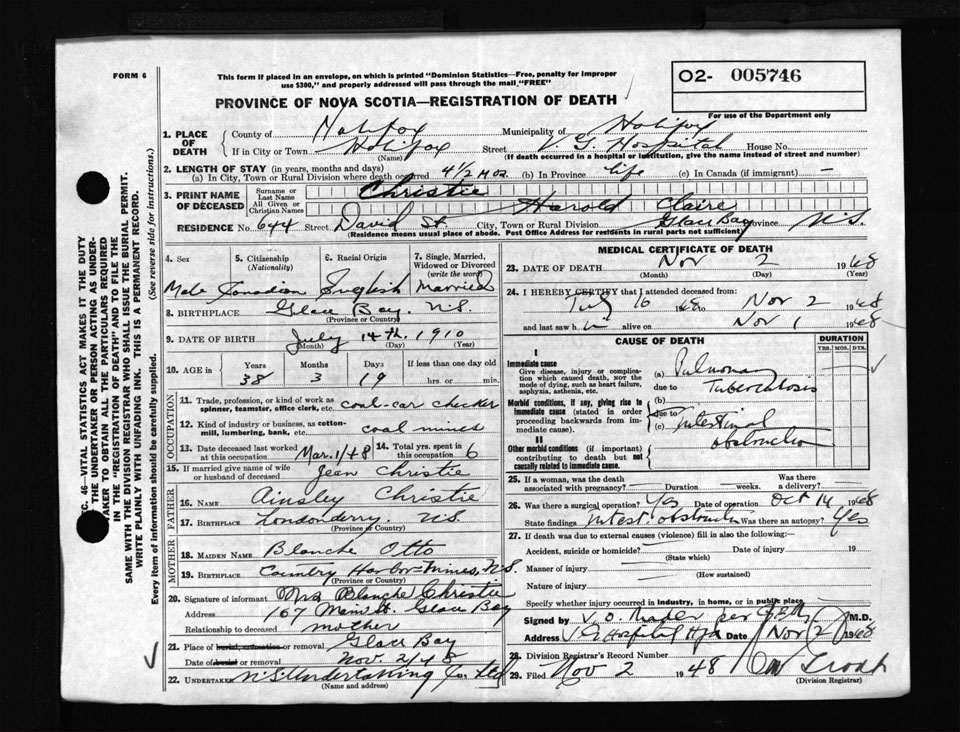 FORM 6
This form if placed in an envelope, on which is printed "Dominion Statistics—Free, penalty for improper
use $300," and properly addressed will pass through the mail "FREE"
O2- 005746
For use of the Department only
PROVINCE OF NOVA SCOTIA—REGISTRATION OF DEATH
SEC. 46—VITAL STATISTICS ACT MAKES IT THE DUTY
OF THE UNDERTAKER OR PERSON ACTING AS UNDER-
TAKER TO OBTAIN ALL THE PARTICULARS REQUIRED
IN THE "REGISTRATION OF DEATH" AND TO FILE THE
SAME WITH THE DIVISION REGISTRAR WHO SHALL ISSUE THE BURIAL PERMIT.
WRITE PLAINLY WITH UNFADING INK. THIS IS A PERMANENT RECORD.
Every item of information should be carefully supplied. (See reverse side for instructions.)
1. PLACE OF DEATH
County of Halifax Municipality of Halifax
If in City or Town Halifax Street V. G. Hospital House No.
(Name) (If death occurred in a hospital or institution, give the name instead of street and number)
2. LENGTH OF STAY (in years, months and days)
(a) In City, Town or Rural Division where death occurred 4 1/2 mos. (b) In Province life (c) In Canada (if immigrant) —
3. PRINT NAME OF DECEASED
Surname or Last Name Christie
All Given or Christian Names Harold Claire
RESIDENCE No. 644 Street David St. City, Town or Rural Division Glace Bay Province N.S.
(Residence means usual place of abode. Post Office Address for residents in rural parts not sufficient)
4. Sex
Male
5. Citizenship (Nationality)
Canadian
6. Racial Origin
English
7. Single, Married, Widowed or Divorced (write the word)
Married
8. BIRTHPLACE Glace Bay. N.S.
(Province or Country)
9. DATE OF BIRTH July 14th. 1910
(Month) (Day) (Year)
10. AGE in Years Months Days If less than one day old
38 3 19 hrs. or min.
OCCUPATION
11. Trade, profession, or kind of work as spinner, teamster, office clerk, etc. coal-car checker
12. Kind of industry or business, as cotton-mill, lumbering, bank, etc. coal mines
13. Date deceased last worked at this occupation Mar. 1/48
14. Total yrs. spent in this occupation 6
15. If married give name of wife or husband of deceased Jean Christie
FATHER
16. NAME Ainsley Christie
17. BIRTHPLACE Londonderry. N.S.
(Province or Country)
MOTHER
18. MAIDEN NAME Blanche Otto
19. BIRTHPLACE Country Harbor Mines, N.S.
(Province or Country)
20. Signature of informant Mrs Blanche Christie
Address 167 Main St. Glace Bay
Relationship to deceased mother
21. Place of burial, cremation or removal Glace Bay
Date of burial or removal Nov. 2/48
22. UNDERTAKER N.S. Undertaking Co. Ltd
(Name and address)
MEDICAL CERTIFICATE OF DEATH
23. DATE OF DEATH Nov 2 1948
(Month) (Day) (Year)
24. I HEREBY CERTIFY that I attended deceased from:
16 1948 to Nov 2 1948
and last saw h im alive on Nov 1 1948
CAUSE OF DEATH
DURATION
YRS. MOS. DYS.
I
Immediate cause
Give disease, injury or complication which caused death, nor the mode of dying, such as heart failure, asphyxia, asthenia, etc.
(a) Pulmonary
due to Tuberculosis
Morbid conditions, if any, giving rise to immediate cause (stated in order proceeding backwards from immediate cause).
(b)
due to
(c) Intestinal obstruction
II
Other morbid conditions (if important) contributing to death but not causally related to immediate cause.
25. If a woman, was the death associated with pregnancy? Duration weeks. Was there a delivery?
26. Was there a surgical operation? Yes Date of operation Oct 14 1948
State findings Intest. obstructn Was there an autopsy? Yes
27. If death was due to external causes (violence) fill in also the following:—
Accident, suicide or homicide? Date of injury 19
(State which)
Manner of injury
(How sustained)
Nature of injury
Specify whether injury occurred in industry, in home, or in public place
Signed by V. O. Mader per M.D.
Address V G Hospital Hfx Date Nov 2 1948
28. Division Registrar's Record Number
29. Filed Nov 2 1948
(Division Registrar)